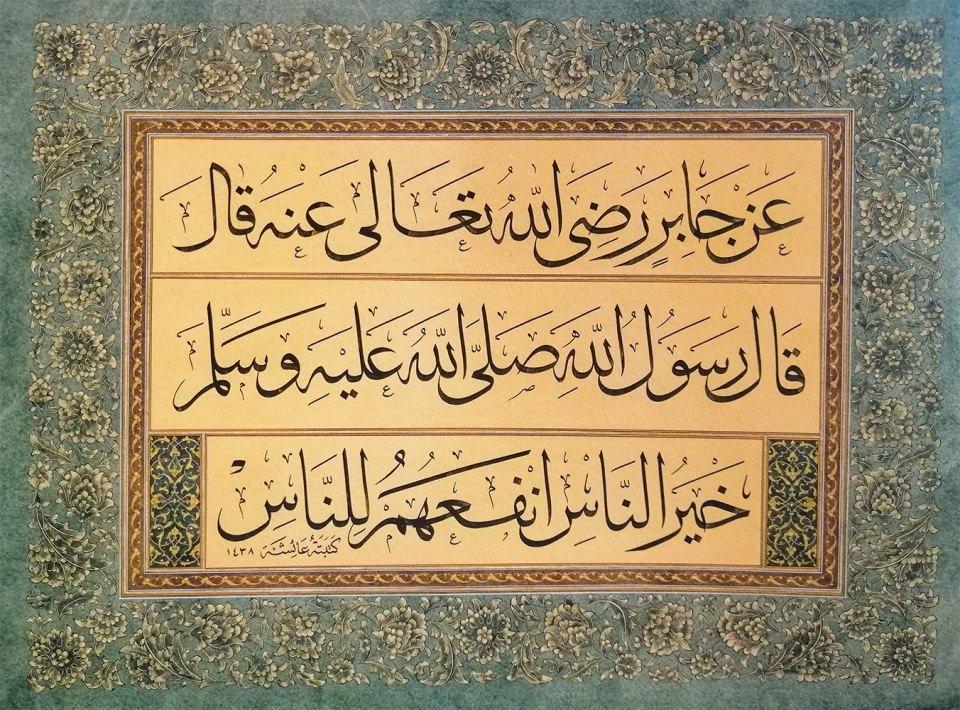 عَنْ جَابِرٍ رَضِيَ اللّٰهُ تَعَالٰى عَنْهُ قَالَ
قَالَ رَسُولُ اللّٰهِ صَلَّى اللّٰهُ عَلَيْهِ وَسَلَّمَ
خَيْرُ النَّاسِ اَنْفَعُهُمْ لِلنَّاسِ
كتبته عائشة ١٤٣٨